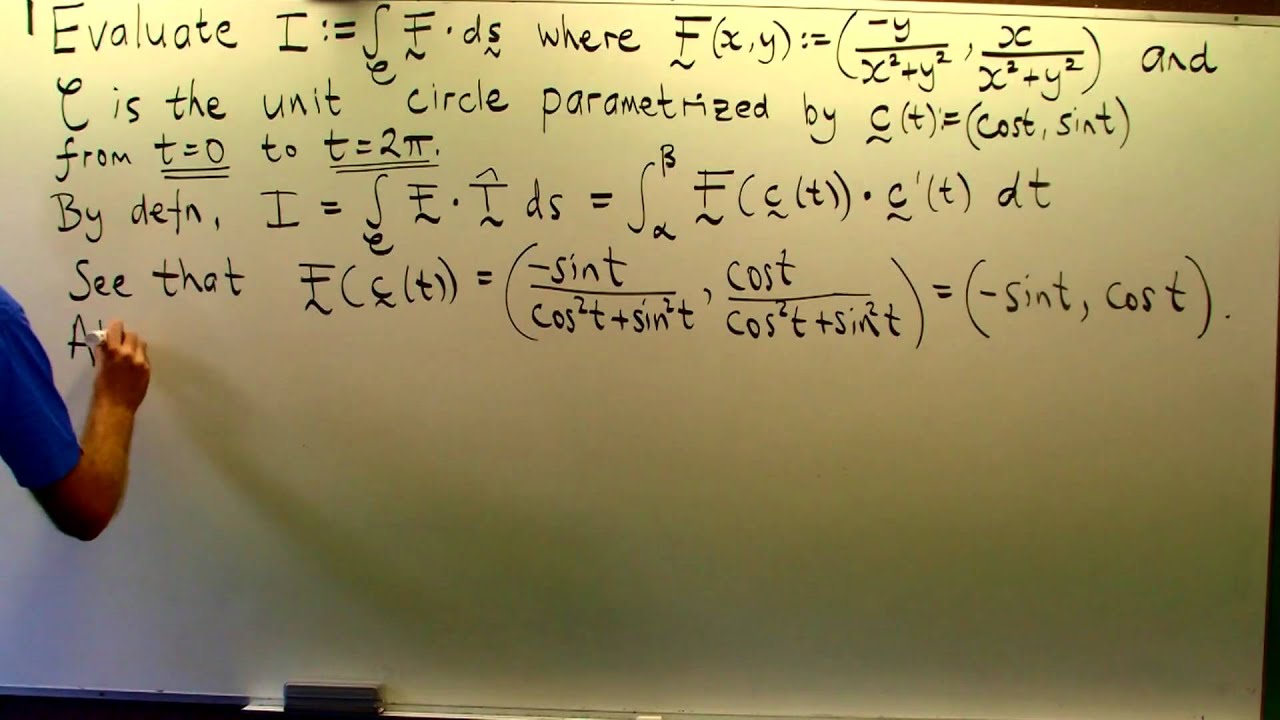 Evaluate I := ∫_C F̰ · ds̰ where F̰(x,y) := (-y/(x²+y²), x/(x²+y²)) and
C is the unit circle parametrized by c̰(t) := (cost, sint)
from t=0 to t=2π.
By defn, I = ∫_C F̰ · T̰̂ ds = ∫_α^β F̰(c̰(t)) · c̰'(t) dt
See that F̰(c̰(t)) = (-sint/(cos²t+sin²t), cost/(cos²t+sin²t)) = (-sint, cost).